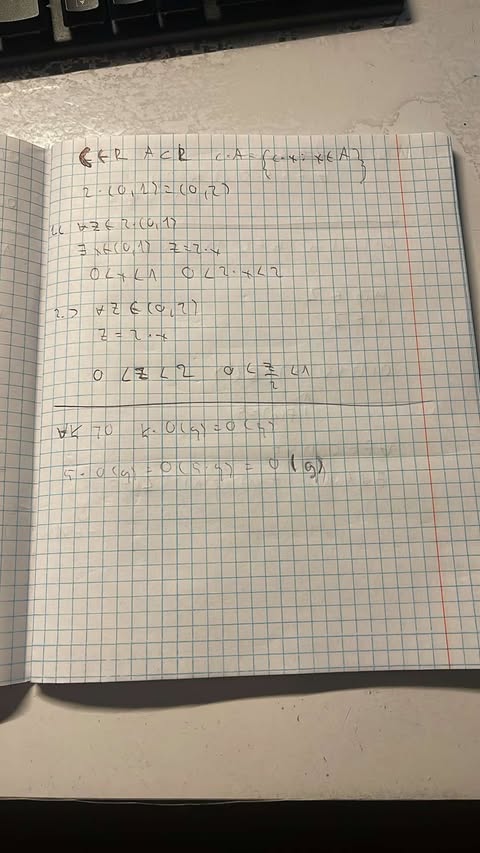 c∈R A⊂R c·A={c·x: x∈A}
2·(0,1)=(0,2)
1.⊂ ∀z∈2·(0,1)
∃x∈(0,1) z=2·x
0<x<1 0<2·x<2
2.⊃ ∀z∈(0,2)
z=2·x
0<z<2 0<z/2<1
0(g)=0(g)
5·0(g)=0(5·g)=0(g)